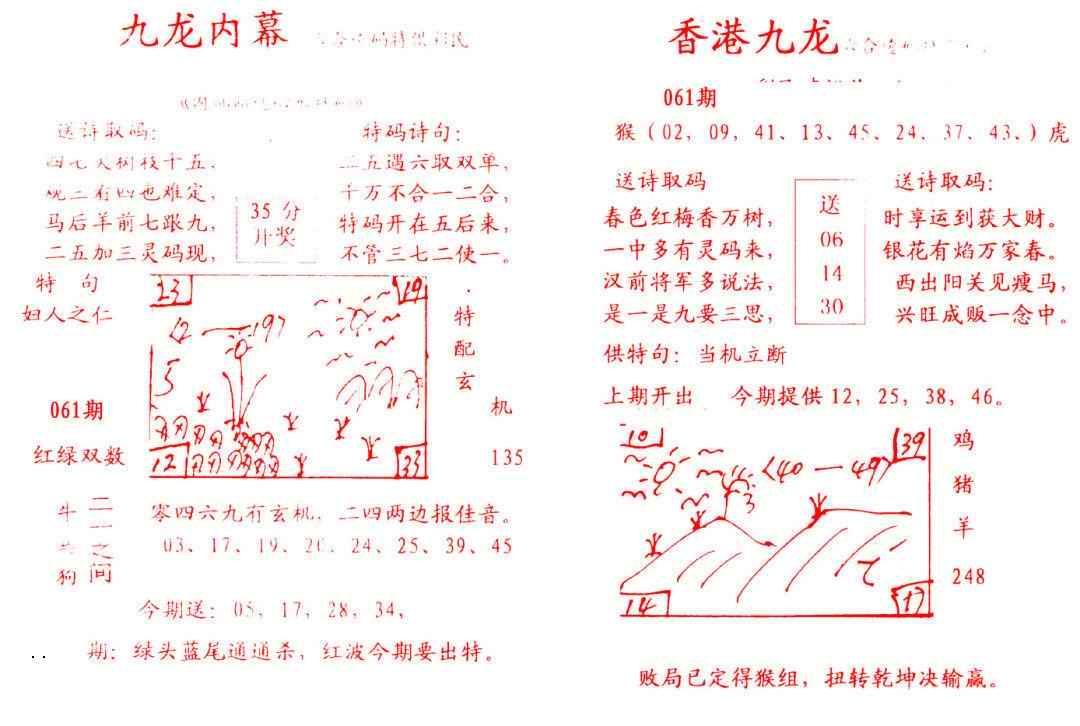 九龙内幕
送诗取码:
特码诗句:
二五遇六取双单,
千万不合一二合,
马后羊前七跟九,
特码开在五后来,
二五加三灵码现,
不管三七二使一。
35分
开奖
特 句
妇人之仁
23
19
(2—19)
5
特
配
玄
机
061期
红绿双数
12
33
135
牛
狗
二一之间
零四六九有玄机, 二四两边报佳音。
03、17、19、20、24、25、39、45
今期送: 05, 17, 28, 34,
期: 绿头蓝尾通通杀, 红波今期要出特。
香港九龙
061期
猴 (02, 09, 41、13、45、24、37、43、) 虎
送诗取码
春色红梅香万树,
一中多有灵码来,
汉前将军多说法,
是一是九要三思,
送
06
14
30
送诗取码:
时享运到获大财。
银花有焰万家春。
西出阳关见瘦马,
兴旺成贩一念中。
供特句: 当机立断
上期开出 今期提供 12, 25, 38, 46。
10
39
(40—49)
3
14
17
鸡
猪
羊
248
败局已定得猴组, 扭转乾坤决输赢。